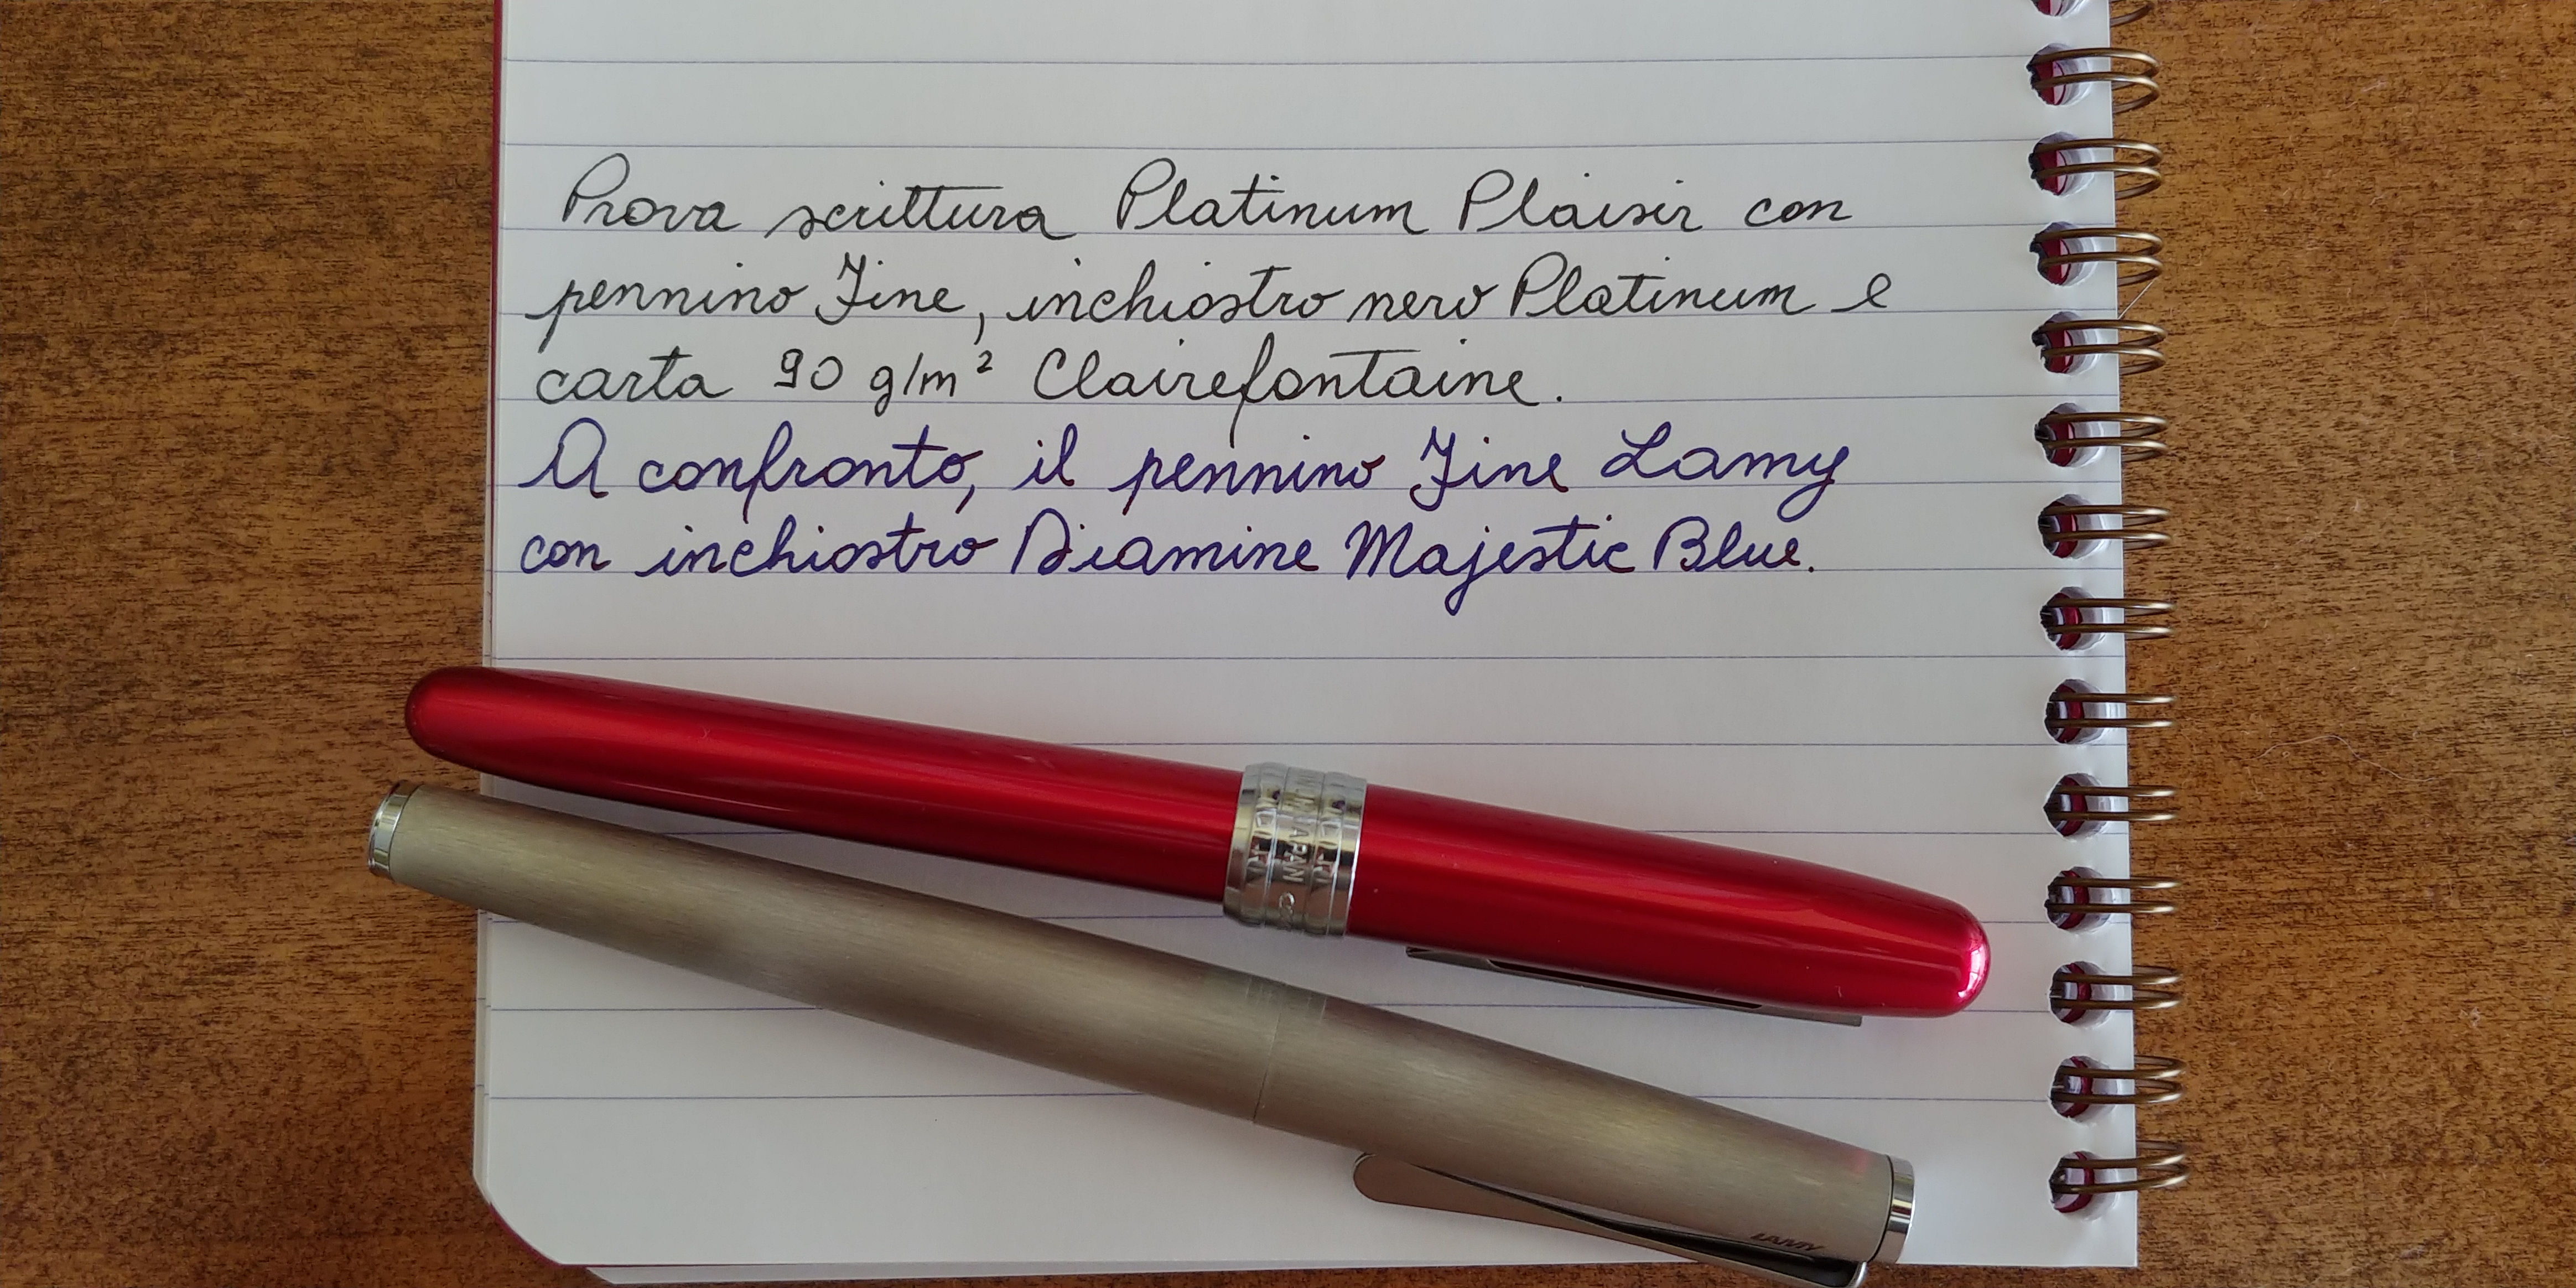 Prova scrittura Platinum Plaisir con
pennino Fine, inchiostro nero Platinum e
carta 90 g/m² Clairefontaine.
A confronto, il pennino Fine Lamy
con inchiostro Diamine Majestic Blue.
JAPAN
LAMY